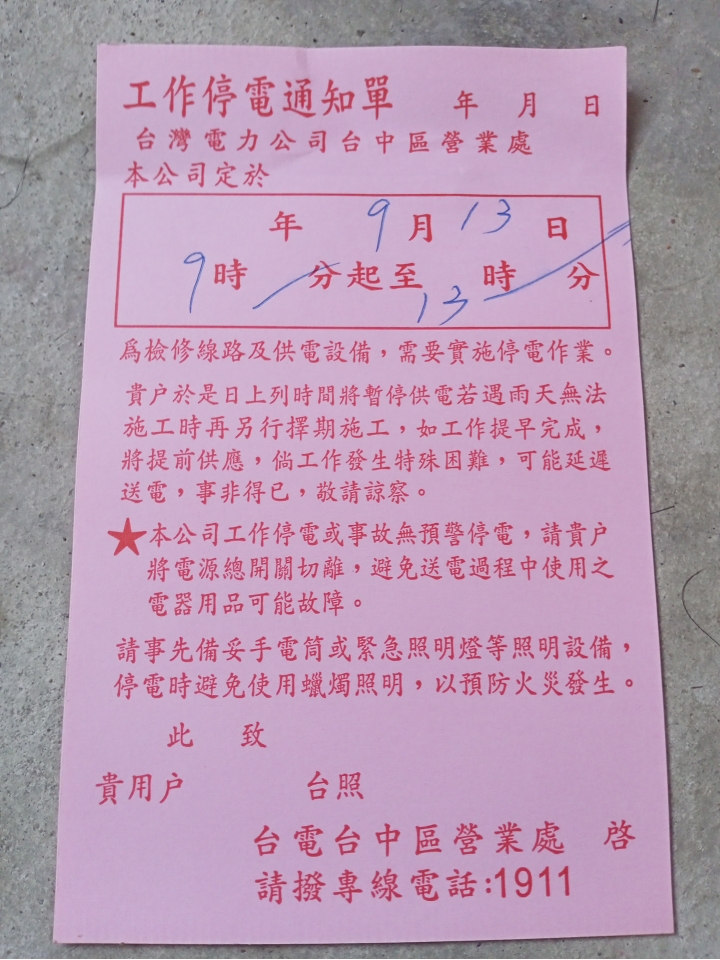 工作停電通知單 年 月 日
台灣電力公司台中區營業處
本公司定於
年 9月 13 日
9時 分起至 13 時 分
爲檢修線路及供電設備，需要實施停電作業。
貴戶於是日上列時間將暫停供電若遇雨天無法
施工時再另行擇期施工，如工作提早完成，
將提前供應，倘工作發生特殊困難，可能延遲
送電，事非得已，敬請諒察。
★本公司工作停電或事故無預警停電，請貴戶
將電源總開關切離，避免送電過程中使用之
電器用品可能故障。
請事先備妥手電筒或緊急照明燈等照明設備，
停電時避免使用蠟燭照明，以預防火災發生。
此 致
貴用戶 台照
台電台中區營業處 啓
請撥專線電話:1911